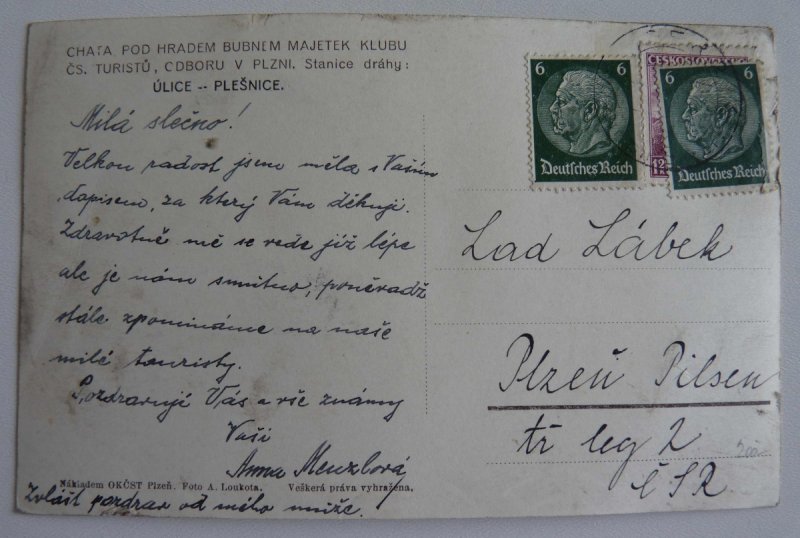 CHATA POD HRADEM BUBNEM MAJETEK KLUBU
ČS. TURISTŮ, ODBORU V PLZNI. Stanice dráhy:
ÚLICE -- PLEŠNICE.
Milá slečno!
Velkou radost jsem měla s Vaším
dopisem, za který Vám děkuji.
Zdravotně mě se vede již lépe
ale je nám smutno, poněvadž
stále zpomínáme na naše
milé touristy.
Pozdravuji Vás a vše známý
Vaši
Anna Menzlová
Nákladem OKČST Plzeň. Foto A. Loukota. Veškerá práva vyhražena.
Zvlášť pozdrav od mého muže.
6
Deutsches Reich
ČESKOSLOV
12
6
Deutsches Reich
Lad Lábek
Plzeň Pilsen
tř leg 2
ČSR